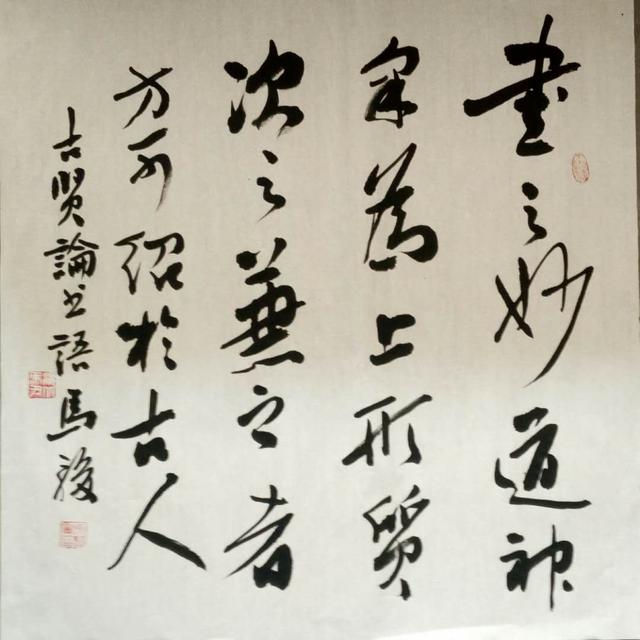 書之妙道神
采為上形質
次之兼之者
方可紹於古人
古賢論书語馬駿